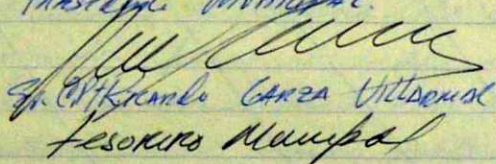 Sr. C.P. Ricardo Garza Villarreal
Tesorero Municipal